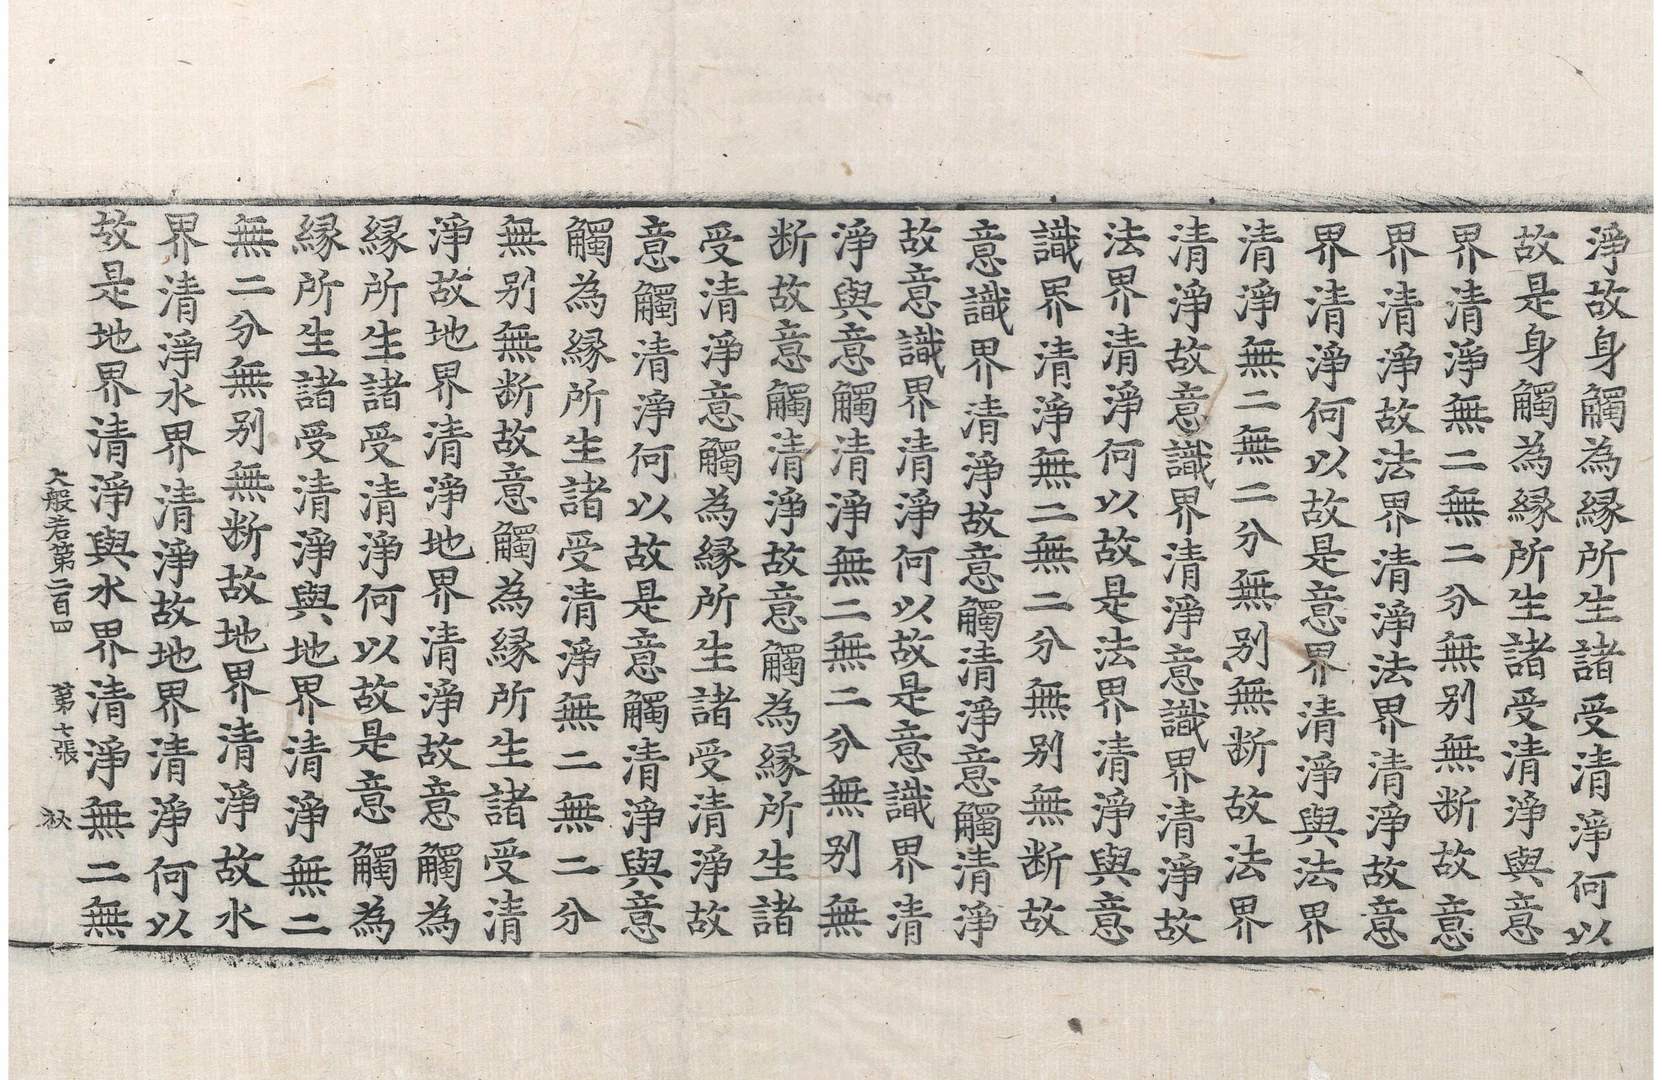 淨故身觸為縁所生諸受清淨何以
故是身觸為縁所生諸受清淨與意
界清淨無二無二分無别無断故意
界清淨故法界清淨法界清淨故意
界清淨何以故是意界清淨與法界
清淨無二無二分無别無断故法界
清淨故意識界清淨意識界清淨故
法界清淨何以故是法界清淨與意
識界清淨無二無二分無别無断故
意識界清淨故意觸清淨意觸清淨
故意識界清淨何以故是意識界清
淨與意觸清淨無二無二分無别無
断故意觸清淨故意觸為縁所生諸
受清淨意觸為縁所生諸受清淨故
意觸清淨何以故是意觸清淨與意
觸為縁所生諸受清淨無二無二分
無别無断故意觸為縁所生諸受清
淨故地界清淨地界清淨故意觸為
縁所生諸受清淨何以故是意觸為
縁所生諸受清淨與地界清淨無二
無二分無别無断故地界清淨故水
界清淨水界清淨故地界清淨何以
故是地界清淨與水界清淨無二無
大般若第二百四 第七張 秋